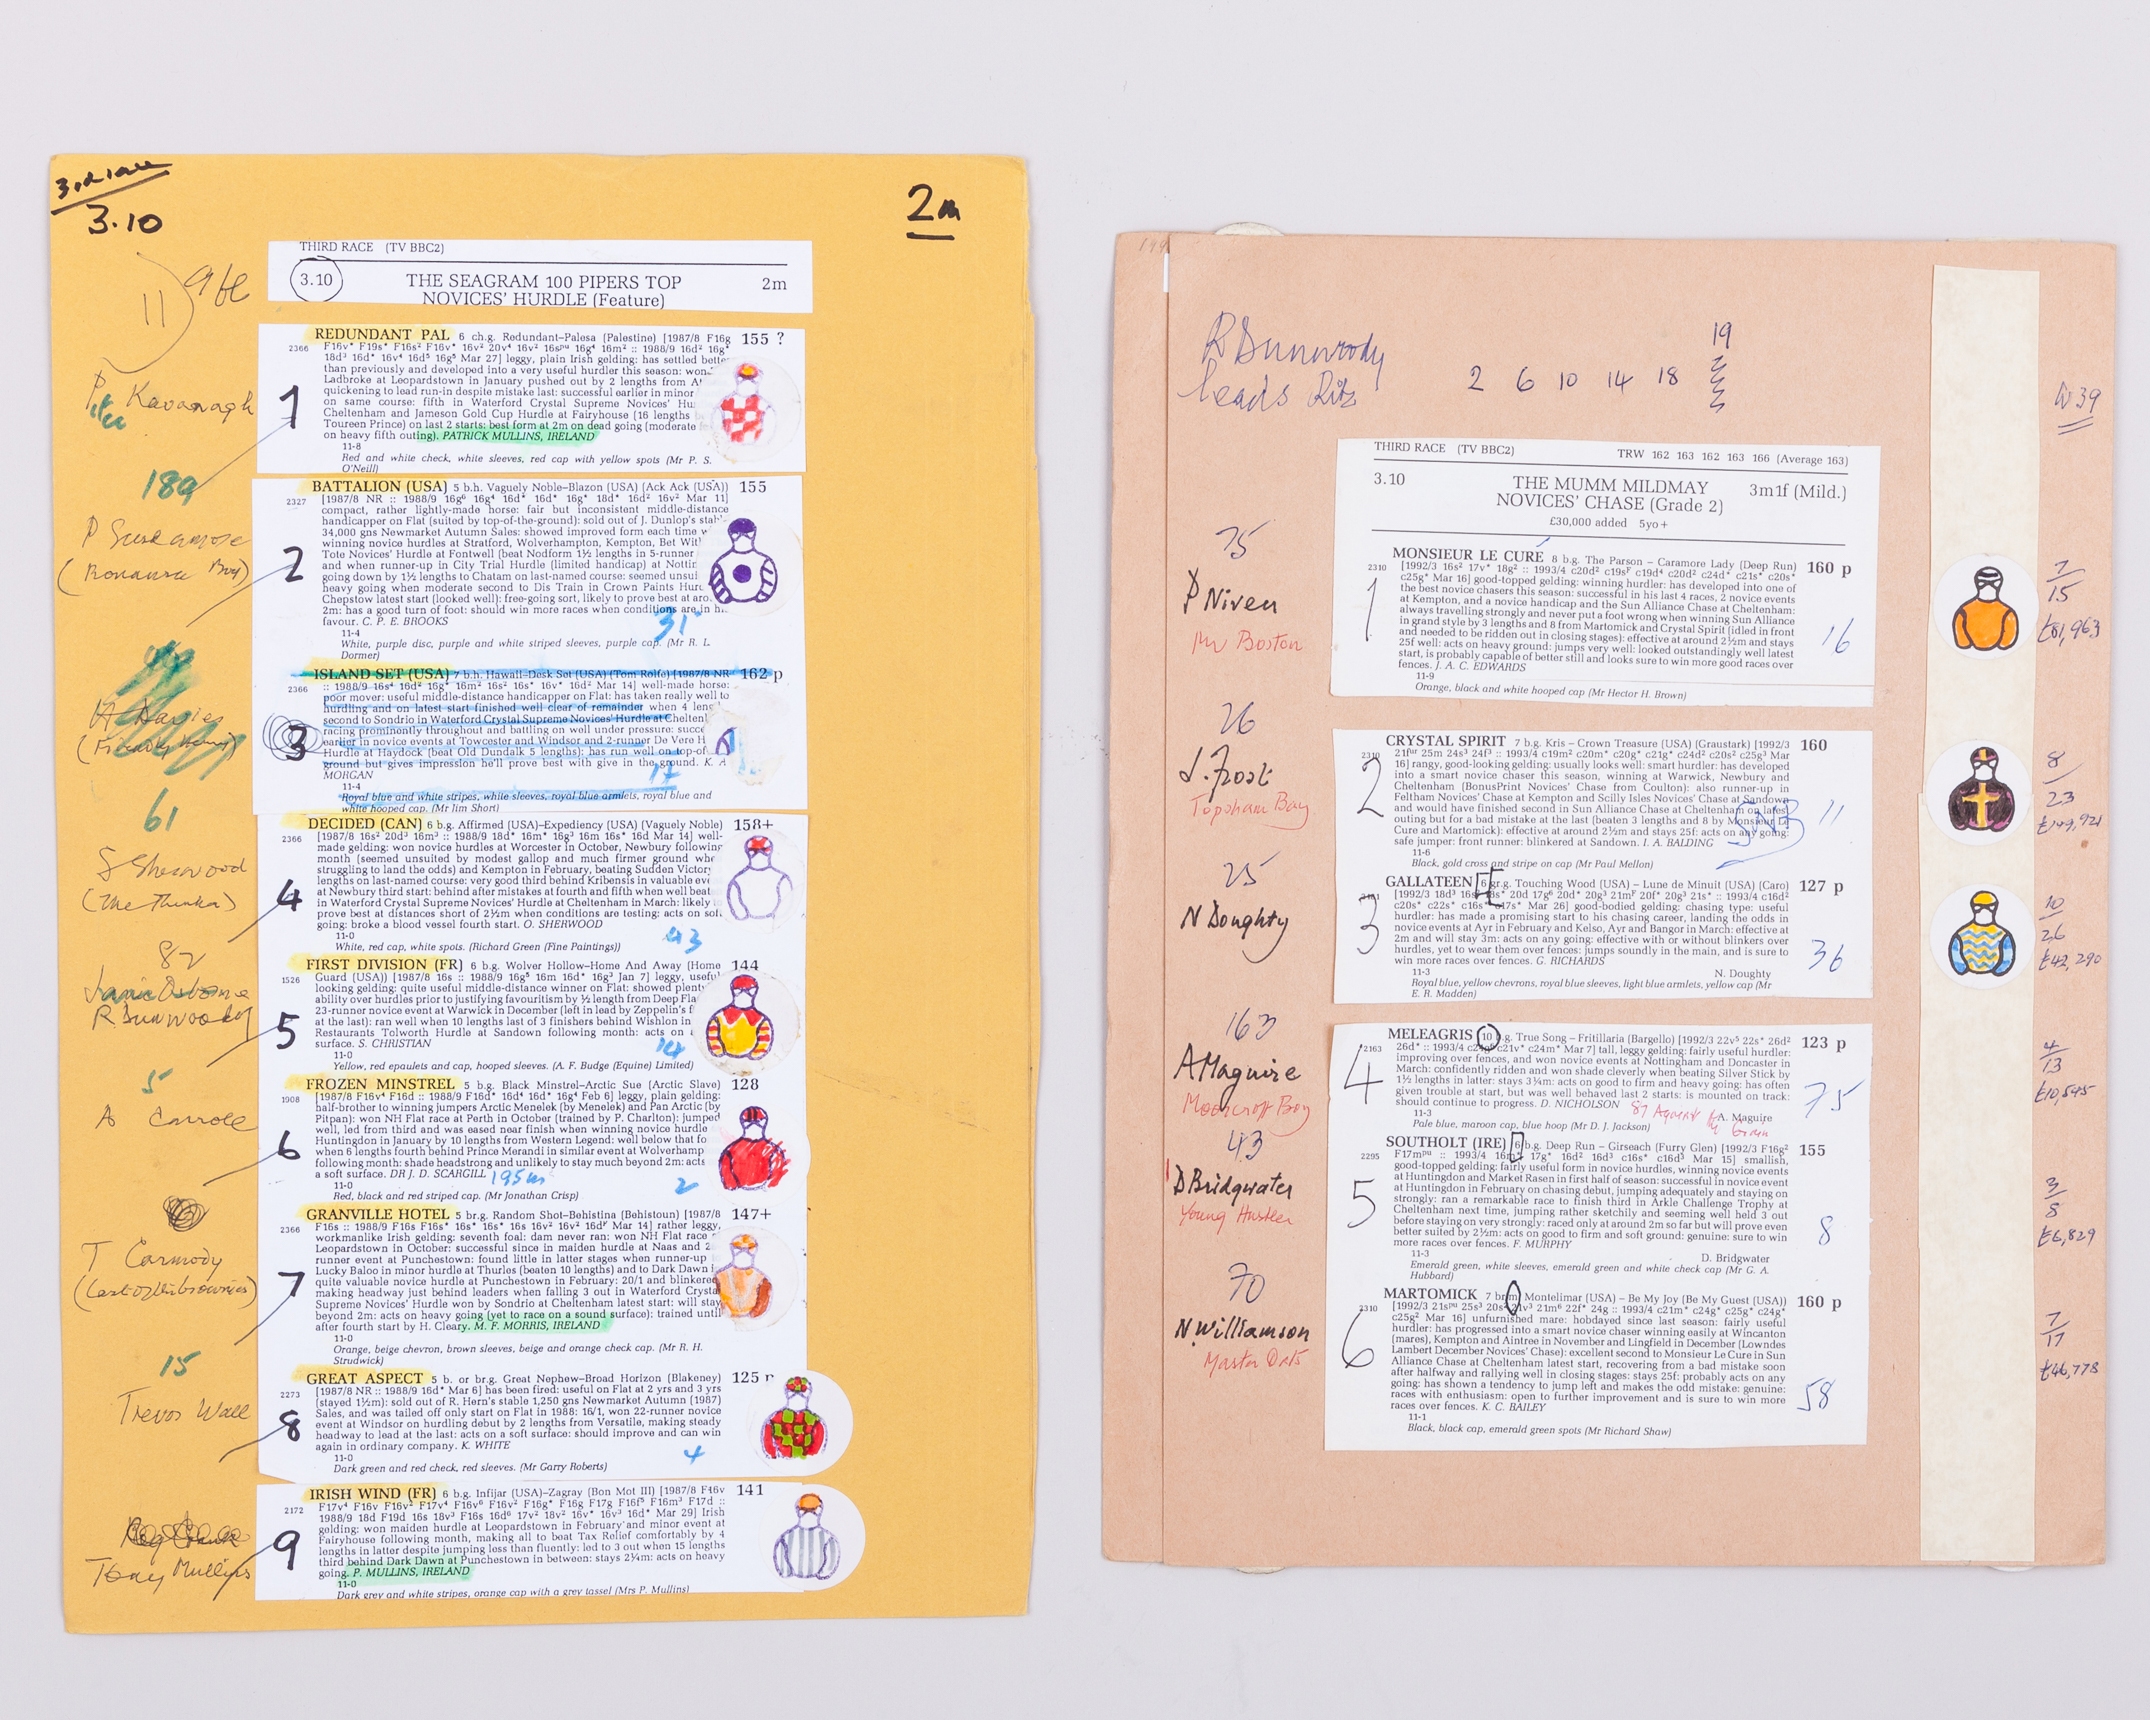 3rd race
3.10
2m
11) a fe
THIRD RACE (TV BBC2)
3.10 THE SEAGRAM 100 PIPERS TOP 2m
NOVICES' HURDLE (Feature)
P. Kavanagh
189
1
REDUNDANT PAL 6 ch.g. Redundant–Palesa (Palestine) [1987/8 F16g 155 ?
2366 F16v* F19s* F16s² F16v* 16v² 20v⁴ 16v² 16spu 16g⁴ 16m² :: 1988/9 16d² 16g*
18d³ 16d* 16v⁴ 16d⁵ 16g⁵ Mar 27] leggy, plain Irish gelding: has settled better
than previously and developed into a very useful hurdler this season: won
Ladbroke at Leopardstown in January pushed out by 2 lengths from A
quickening to lead run-in despite mistake last: successful earlier in minor
on same course: fifth in Waterford Crystal Supreme Novices' Hu
Cheltenham and Jameson Gold Cup Hurdle at Fairyhouse (16 lengths
Toureen Prince) on last 2 starts: best form at 2m on dead going (moderate
on heavy fifth outing). PATRICK MULLINS, IRELAND
11-8
Red and white check, white sleeves, red cap with yellow spots (Mr P. S.
O'Neill)
P Scudamore
(Bonanza Boy)
2
BATTALION (USA) 5 b.h. Vaguely Noble–Blazon (USA) (Ack Ack (USA)) 155
2327 [1987/8 NR :: 1988/9 16g⁶ 16g⁴ 16d* 16d* 16g* 18d* 16d² 16v² Mar 11]
compact, rather lightly-made horse: fair but inconsistent middle-distance
handicapper on Flat (suited by top-of-the-ground): sold out of J. Dunlop's stab
34,000 gns Newmarket Autumn Sales: showed improved form each time w
winning novice hurdles at Stratford, Wolverhampton, Kempton, Bet Wit
Tote Novices' Hurdle at Fontwell (beat Nodform 1½ lengths in 5-runner
and when runner-up in City Trial Hurdle (limited handicap) at Nottin
going down by 1½ lengths to Chatam on last-named course: seemed unsui
heavy going when moderate second to Dis Train in Crown Paints Hur
Chepstow latest start (looked well): free-going sort, likely to prove best at aro
2m: has a good turn of foot: should win more races when conditions are in h
favour. C. P. E. BROOKS 31
11-4
White, purple disc, purple and white striped sleeves, purple cap. (Mr R. L.
Dormer)
H Davies
61
3
ISLAND SET (USA) 7 b.h. Hawaii–Desk Set (USA) (Tom Rolfe) [1987/8 NR 162 p
2366 :: 1988/9 16s⁴ 16d² 16g* 16m² 16s² 16s* 16v* 16d² Mar 14] well-made horse:
poor mover: useful middle-distance handicapper on Flat: has taken really well to
hurdling and on latest start finished well clear of remainder when 4 leng
second to Sondrio in Waterford Crystal Supreme Novices' Hurdle at Chelten
racing prominently throughout and battling on well under pressure: succe
earlier in novice events at Towcester and Windsor and 2-runner De Vere H
Hurdle at Haydock (beat Old Dundalk 5 lengths): has run well on top-of-
ground but gives impression he'll prove best with give in the ground. K. A
MORGAN 17
11-4
Royal blue and white stripes, white sleeves, royal blue armlets, royal blue and
white hooped cap. (Mr Jim Short)
S Sherwood
(The Thinker)
82
4
DECIDED (CAN) 6 b.g. Affirmed (USA)–Expediency (USA) (Vaguely Noble) 158+
2366 [1987/8 16s² 20d³ 16m³ :: 1988/9 18d* 16m* 16g³ 16m 16s* 16d Mar 14] well-
made gelding: won novice hurdles at Worcester in October, Newbury following
month (seemed unsuited by modest gallop and much firmer ground whe
struggling to land the odds) and Kempton in February, beating Sudden Victory
lengths on last-named course: very good third behind Kribensis in valuable ev
at Newbury third start: behind after mistakes at fourth and fifth when well beat
in Waterford Crystal Supreme Novices' Hurdle at Cheltenham in March: likely
prove best at distances short of 2½m when conditions are testing: acts on soft
going: broke a blood vessel fourth start. O. SHERWOOD
11-0 43
White, red cap, white spots. (Richard Green (Fine Paintings))
Jamie Osborne
R. Dunwoody
5
5
FIRST DIVISION (FR) 6 b.g. Wolver Hollow–Home And Away (Home 144
1526 Guard (USA)) [1987/8 16s :: 1988/9 16g⁵ 16m 16d* 16g³ Jan 7] leggy, useful
looking gelding: quite useful middle-distance winner on Flat: showed plenty
ability over hurdles prior to justifying favouritism by ½ length from Deep Fla
23-runner novice event at Warwick in December (left in lead by Zeppelin's f
at the last): ran well when 10 lengths last of 3 finishers behind Wishlon in
Restaurants Tolworth Hurdle at Sandown following month: acts on
surface. S. CHRISTIAN
11-0 14
Yellow, red epaulets and cap, hooped sleeves. (A. F. Budge (Equine) Limited)
A Carroll
6
FROZEN MINSTREL 5 b.g. Black Minstrel–Arctic Sue (Arctic Slave) 128
1908 [1987/8 F16v⁴ F16d :: 1988/9 F16d* 16d⁴ 16d* 16g⁴ Feb 6] leggy, plain gelding:
half-brother to winning jumpers Arctic Menelek (by Menelek) and Pan Arctic (by
Pitpan): won NH Flat race at Perth in October (trained by P. Charlton): jumped
well, led from third and was eased near finish when winning novice hurdle
Huntingdon in January by 10 lengths from Western Legend: well below that fo
when 6 lengths fourth behind Prince Merandi in similar event at Wolverhamp
following month: shade headstrong and unlikely to stay much beyond 2m: acts
a soft surface. DR J. D. SCARGILL 195m
11-0 2
Red, black and red striped cap. (Mr Jonathan Crisp)
T Carmody
(Last of the brownies)
15
7
GRANVILLE HOTEL 5 br.g. Random Shot–Behistina (Behistoun) [1987/8 147+
2366 F16s :: 1988/9 F16s F16s* 16s* 16s* 16s 16v² 16v² 16dF Mar 14] rather leggy,
workmanlike Irish gelding: seventh foal: dam never ran: won NH Flat race
Leopardstown in October: successful since in maiden hurdle at Naas and 2
runner event at Punchestown: found little in latter stages when runner-up
Lucky Baloo in minor hurdle at Thurles (beaten 10 lengths) and to Dark Dawn
quite valuable novice hurdle at Punchestown in February: 20/1 and blinkered
making headway just behind leaders when falling 3 out in Waterford Crysta
Supreme Novices' Hurdle won by Sondrio at Cheltenham latest start: will stay
beyond 2m: acts on heavy going (yet to race on a sound surface): trained until
after fourth start by H. Cleary. M. F. MORRIS, IRELAND
11-0
Orange, beige chevron, brown sleeves, beige and orange check cap. (Mr R. H.
Strudwick)
Trevor Wall
8
GREAT ASPECT 5 b. or br.g. Great Nephew–Broad Horizon (Blakeney) 125 p
2273 [1987/8 NR :: 1988/9 16d* Mar 6] has been fired: useful on Flat at 2 yrs and 3 yrs
(stayed 1½m): sold out of R. Hern's stable 1,250 gns Newmarket Autumn (1987)
Sales, and was tailed off only start on Flat in 1988: 16/1, won 22-runner novice
event at Windsor on hurdling debut by 2 lengths from Versatile, making steady
headway to lead at the last: acts on a soft surface: should improve and can win
again in ordinary company. K. WHITE
11-0 4
Dark green and red check, red sleeves. (Mr Garry Roberts)
Tony Mullins
9
IRISH WIND (FR) 6 b.g. Infijar (USA)–Zagray (Bon Mot III) [1987/8 F16v 141
2172 F17v⁴ F16v F16v² F17v⁴ F16v⁶ F16v² F16g* F16g F17g F16f⁵ F16m³ F17d ::
1988/9 18d F19d 16s 18v³ F16s 16d⁶ 17v² 18v² 16v* 16v³ 16d* Mar 29] Irish
gelding: won maiden hurdle at Leopardstown in February and minor event at
Fairyhouse following month, making all to beat Tax Relief comfortably by 4
lengths in latter despite jumping less than fluently: led to 3 out when 15 lengths
third behind Dark Dawn at Punchestown in between: stays 2¼m: acts on heavy
going. P. MULLINS, IRELAND
11-0
Dark grey and white stripes, orange cap with a grey tassel (Mrs P. Mullins)
R Dunwoody
leads Ritz 2 6 10 14 18 19
W 39
THIRD RACE (TV BBC2) TRW 162 163 162 163 166 (Average 163)
3.10 THE MUMM MILDMAY 3m1f (Mild.)
NOVICES' CHASE (Grade 2)
£30,000 added 5yo+
75
P Niven
Mr Boston
1
MONSIEUR LE CURÉ 8 b.g. The Parson – Caramore Lady (Deep Run)
2310 [1992/3 16s² 17v* 18g² :: 1993/4 c20d² c19sF c19d⁴ c20d² c24d* c21s* c20s* 160 p
c25g* Mar 16] good-topped gelding: winning hurdler: has developed into one of
the best novice chasers this season: successful in his last 4 races, 2 novice events
at Kempton, and a novice handicap and the Sun Alliance Chase at Cheltenham:
always travelling strongly and never put a foot wrong when winning Sun Alliance
in grand style by 3 lengths and 8 from Martomick and Crystal Spirit (idled in front
and needed to be ridden out in closing stages): effective at around 2½m and stays
25f well: acts on heavy ground: jumps very well: looked outstandingly well latest
start, is probably capable of better still and looks sure to win more good races over
fences. J. A. C. EDWARDS 16
11-9
Orange, black and white hooped cap (Mr Hector H. Brown)
7/15
£81,963
26
J. Frost
Topsham Bay
2
CRYSTAL SPIRIT 7 b.g. Kris – Crown Treasure (USA) (Graustark) [1992/3 160
2310 21fur 25m 24s³ 24f³ :: 1993/4 c19m² c20m* c20g* c21g* c24d² c20s² c25g³ Mar
16] rangy, good-looking gelding: usually looks well: smart hurdler: has developed
into a smart novice chaser this season, winning at Warwick, Newbury and
Cheltenham (BonusPrint Novices' Chase from Coulton): also runner-up in
Feltham Novices' Chase at Kempton and Scilly Isles Novices' Chase at Sandown
and would have finished second in Sun Alliance Chase at Cheltenham on latest
outing but for a bad mistake at the last (beaten 3 lengths and 8 by Monsieur Le
Cure and Martomick): effective at around 2½m and stays 25f: acts on any going:
safe jumper: front runner: blinkered at Sandown. I. A. BALDING
11-6 11
Black, gold cross and stripe on cap (Mr Paul Mellon)
8/23
£149,921
25
N Doughty
3
GALLATEEN 6 gr.g. Touching Wood (USA) – Lune de Minuit (USA) (Caro) 127 p
[1992/3 18d³ 16s* 20d 17g⁶ 20d* 20g³ 21mF 20f* 20g³ 21s* :: 1993/4 c16d²
c20s* c22s* c16s* c17s* Mar 26] good-bodied gelding: chasing type: useful
hurdler: has made a promising start to his chasing career, landing the odds in
novice events at Ayr in February and Kelso, Ayr and Bangor in March: effective at
2m and will stay 3m: acts on any going: effective with or without blinkers over
hurdles, yet to wear them over fences: jumps soundly in the main, and is sure to
win more races over fences. G. RICHARDS 36
11-3 N. Doughty
Royal blue, yellow chevrons, royal blue sleeves, light blue armlets, yellow cap (Mr
E. R. Madden)
10/26
£42,290
163
A Maguire
Moorcroft Boy
4
MELEAGRIS 10 b.g. True Song – Fritillaria (Bargello) [1992/3 22v⁵ 22s* 26d² 123 p
2163 26d* :: 1993/4 c21v* c24m* Mar 7] tall, leggy gelding: fairly useful hurdler:
improving over fences, and won novice events at Nottingham and Doncaster in
March: confidently ridden and won shade cleverly when beating Silver Stick by
1½ lengths in latter: stays 3¼m: acts on good to firm and heavy going: has often
given trouble at start, but was well behaved last 2 starts: is mounted on track:
should continue to progress. D. NICHOLSON 75
11-3 A. Maguire
Pale blue, maroon cap, blue hoop (Mr D. J. Jackson)
4/13
£10,545
43
D Bridgwater
Young Hustler
5
SOUTHOLT (IRE) 6 b.g. Deep Run – Girseach (Furry Glen) [1992/3 F16g² 155
2295 F17mpu :: 1993/4 16m² 17g* 16d² 16d³ c16s* c16d³ Mar 15] smallish,
good-topped gelding: fairly useful form in novice hurdles, winning novice events
at Huntingdon and Market Rasen in first half of season: successful in novice event
at Huntingdon in February on chasing debut, jumping adequately and staying on
strongly: ran a remarkable race to finish third in Arkle Challenge Trophy at
Cheltenham next time, jumping rather sketchily and seeming well held 3 out
before staying on very strongly: raced only at around 2m so far but will prove even
better suited by 2½m: acts on good to firm and soft ground: genuine: sure to win
more races over fences. F. MURPHY 8
11-3 D. Bridgwater
Emerald green, white sleeves, emerald green and white check cap (Mr G. A.
Hubbard)
3/8
£6,829
70
N. Williamson
Master Oats
6
MARTOMICK 7 br.m. Montelimar (USA) – Be My Joy (Be My Guest (USA)) 160 p
2310 [1992/3 21spu 25s³ 20s² 21v³ 21m⁶ 22f* 24g :: 1993/4 c21m* c24g* c25g* c24g*
c25g² Mar 16] unfurnished mare: hobdayed since last season: fairly useful
hurdler: has progressed into a smart novice chaser winning easily at Wincanton
(mares), Kempton and Aintree in November and Lingfield in December (Lowndes
Lambert December Novices' Chase): excellent second to Monsieur Le Cure in Sun
Alliance Chase at Cheltenham latest start, recovering from a bad mistake soon
after halfway and rallying well in closing stages: stays 25f: probably acts on any
going: has shown a tendency to jump left and makes the odd mistake: genuine:
races with enthusiasm: open to further improvement and is sure to win more
races over fences. K. C. BAILEY 58
11-1
Black, black cap, emerald green spots (Mr Richard Shaw)
7/17
£46,778